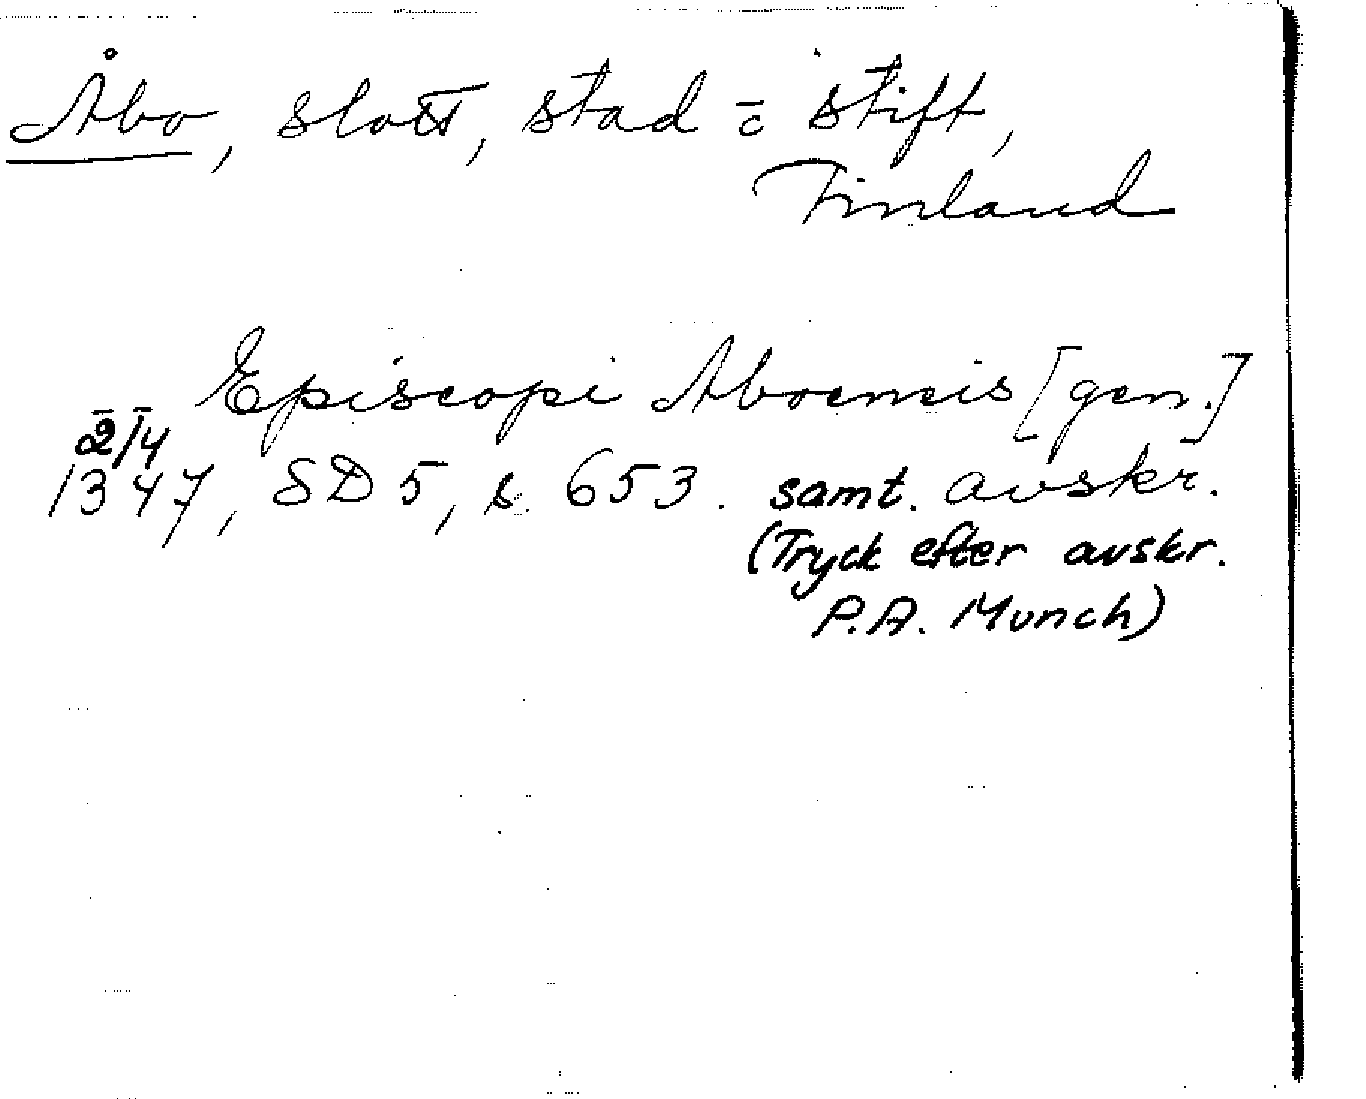 Åbo, slott, stad o stift,
Finland
Episcopi Aboensis [gen.]
2/4
1347, SD 5, s. 653. samt. avskr.
(Tryck efter avskr.
P.A. Munch)